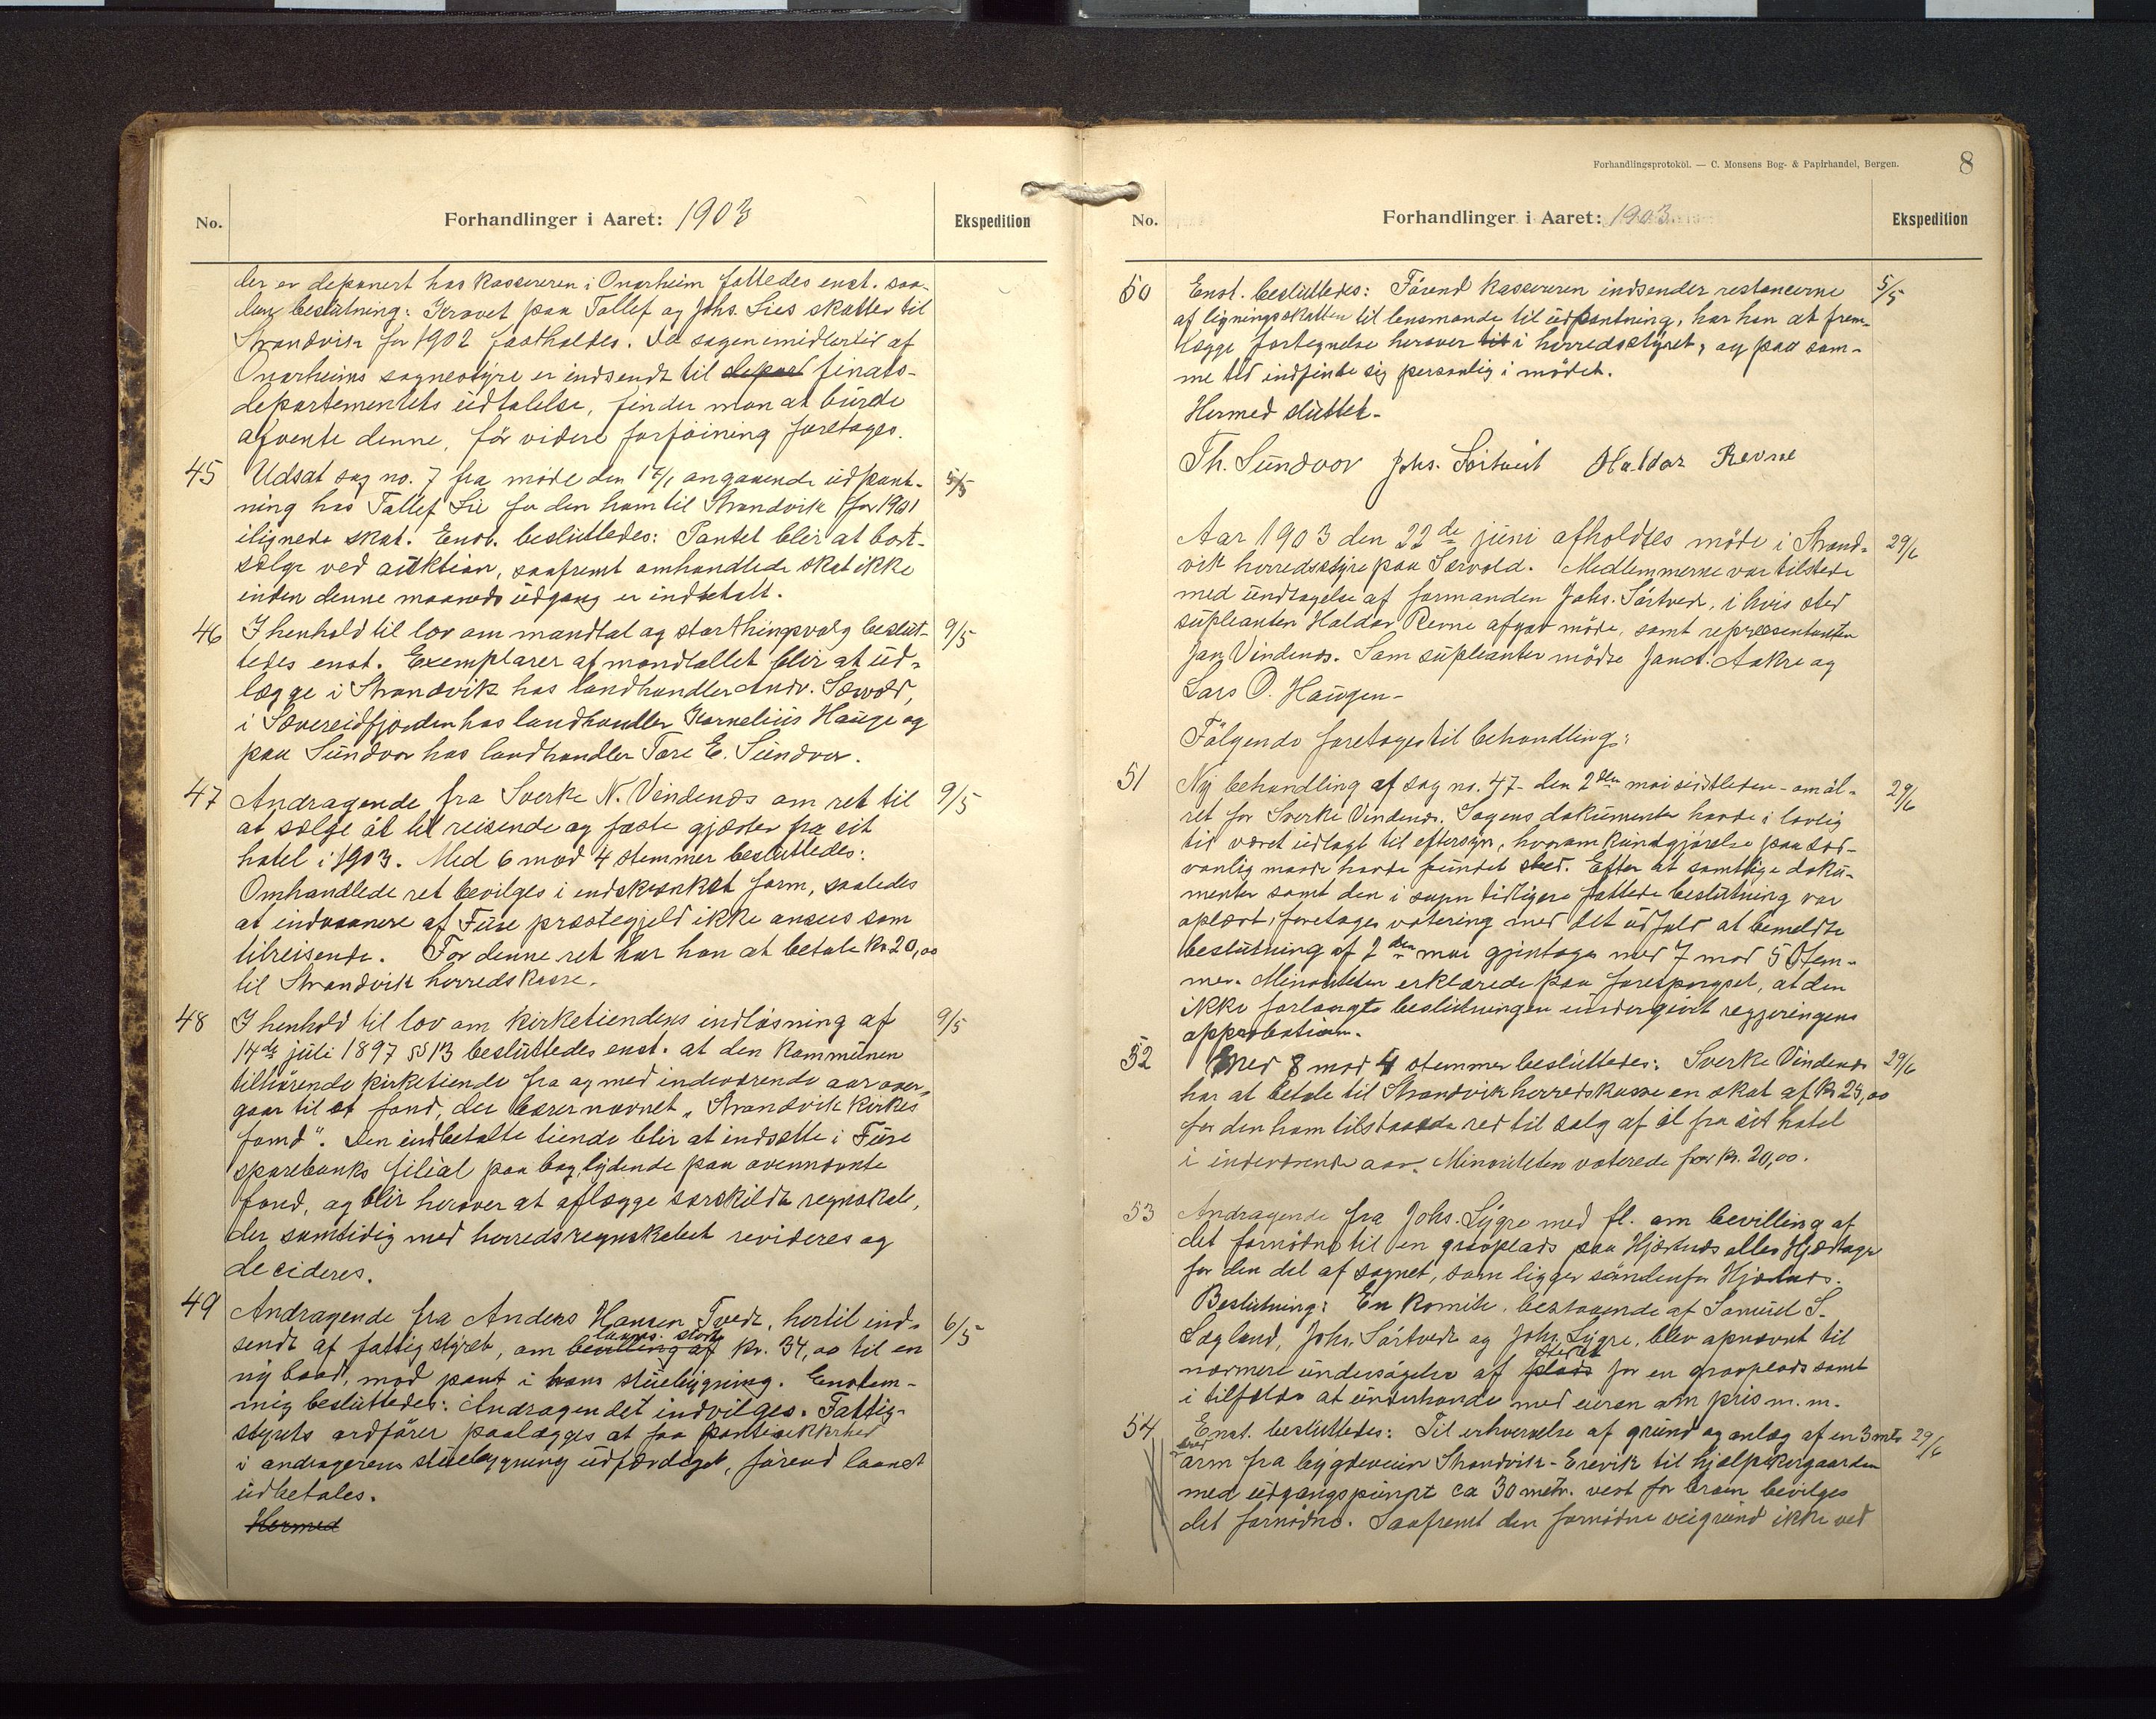 No.
Forhandlinger i Aaret: 1903
Ekspedition
der er deponert hos kassereren i Onarheim fattedes enst. saa-
dan beslutning: Kravet paa Tallef og Johs. Lies skatter til
Strandvik for 1902 fastholdes. Da sagen imidlertid af
Onarheims sognestyre er indsendt til depart finats-
departementets udtalelse, finder man at burde
afvente denne, før videre forføining foretages.
45 Udsat sag no. 7 fra møde den 17/1 angaaende udpant- 5/5
ning hos Tallef Lie for den ham til Strandvik for 1901
ilignede skat. Enst. besluttedes: Pantet blir at bort-
sælge ved auktion, saafremt omhandlede skat ikke
inden denne maaneds udgang er indbetalt.
46 I henhold til lov om mandtal og storthingsvalg beslut- 9/5
tedes enst. Exemplarer af mandtallet blir at ud-
lægge i Strandvik hos landhandler Andr. Sævold,
i Sævereidfjorden hos landhandler Kornelius Hauge og
paa Sundvor hos landhandler Tore E. Sundvor.
47 Andragende fra Sverke N. Vindenes om ret til 9/5
at sælge øl til reisende og faste gjæster fra sit
hotel i 1903. Med 6 mod 4 stemmer besluttedes:
Omhandlede ret bevilges i indskrænket form, saaledes
at indvaanere af Fuse præstegjeld ikke ansees som
tilreisende. For denne ret har han at betale kr 20,00
til Strandvik herredskasse.
48 I henhold til lov om kirketiendens indløsning af 9/5
14de juli 1897 §§ 13 besluttedes enst. at den kommunen
tilhørende kirketiende fra og med indeværende aar over-
gaar til et fond, der bærer navnet „Strandvik kirkes
fond". Den indbetalte tiende blir at indsætte i Fuse
sparebanks filial paa bog lydende paa ovennævnte
fond, og blir herover at aflægge særskildt regnskab,
der samtidig med herredsregnskabet revideres og
decideres.
49 Andragende fra Anders Hansen Tvedt, hertil ind- 6/5
sendt af fattigstyret, om bevilling af laans. stort kr. 34,00 til en
ny baad, mod pant i hans stuebygning. Enstem-
mig besluttedes: Andragendet indvilges. Fattig-
styrets ordfører paalægges at faa pantesikkerhed
i andragerens stuebygning udfærdiget, førend laanet
udbetales.
Hermed
Forhandlingsprotokol. — C. Monsens Bog- & Papirhandel, Bergen.
8
No.
Forhandlinger i Aaret: 1903
Ekspedition
50 Enst. besluttedes: Førend kassereren indsender restancerne 5/5
af ligningsskatten til lensmanden til udpantning, har han at frem-
lægge fortegnelse herover til i herredsstyret, og paa sam-
me tid indfinde sig personlig i mødet.
Hermed sluttet.
Th. Sundvor Johs. Sørtveit Haldor Revne
Aar 1903 den 22de juni afholdtes møde i Strand- 29/6
vik herredsstyre paa Sævold. Medlemmerne var tilstede
med undtagelse af formanden Johs. Sørtvedt, i hvis sted
supleanten Haldor Revne afgav møde, samt repræsentanten
Jan Vindenes. Som supleanter mødte Janet. Aakre og
Lars O. Haugen.
Følgende foretages til behandling:
51 Ny behandling af sag no. 47 den 2den mai sidstleden - om øl- 29/6
ret for Sverke Vindenes. Sagens dokumenter havde i lovlig
tid været udlagt til eftersyn, hvorom kundgjørelse paa sæd-
vanlig maade havde fundet sted. Efter at samtlige doku-
menter samt den i sagen tidligere fattede beslutning var
oplæst, foretages votering med det udfald at bemeldte
beslutning af 2den mai gjentoges med 7 mod 5 stem-
mer. Minoriteten erklærede paa forespørgsel, at den
ikke forlangte beslutningen undergivet regjeringens
approbation.
52 Med 8 mod 4 stemmer besluttedes: Sverke Vindenes 29/6
har at betale til Strandvik herredskasse en skat af kr 25,00
for den ham tilstaaede ret til salg af øl fra sit hotel
i indeværende aar. Minoriteten voterede for kr. 20,00.
53 Andragende fra Johs. Lygre med fl. om bevilling af
det fornødne til en gravplads paa Hjartnes eller Hjørtager
for den del af sognet, som ligger søndenfor Hjartnes.
Beslutning: En komite, bestaaende af Samuel S.
Lægland, Johs. Sørtvedt og Johs. Lygre, blev opnævnt til
nærmere undersøgelse af plads stedet for en gravplads samt
i tilfælde at underhandle med eieren om pris m. m.
54 Enst. besluttedes: Til erhvervelse af grund og anlæg af en 3 mtr 29/6
bred arm fra bygdeveien Strandvik-Erevik til hjælpekirgaarden
med udgangspunkt ca 30 metr. vest for broen bevilges
det fornødne. Saafremt den fornødne veigrund ikke ved